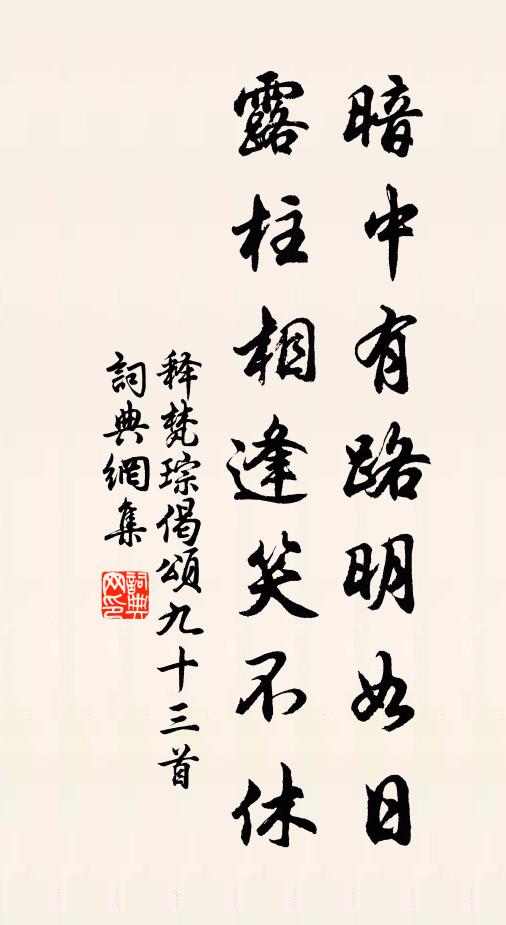 暗中有路明如日
露柱相逢笑不休
释梵琮偈頌九十三首
詞典網集
詞典
网印